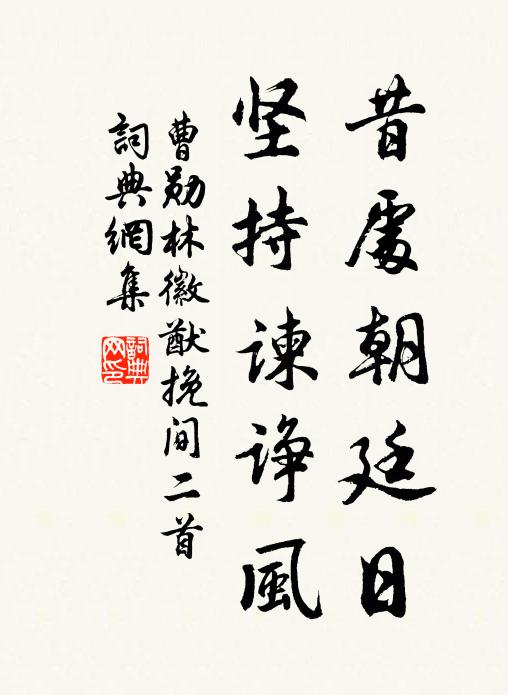 昔處朝廷日
坚持諫諍風
曹勋林徽猷挽间二首
詞典網集
詞典網印